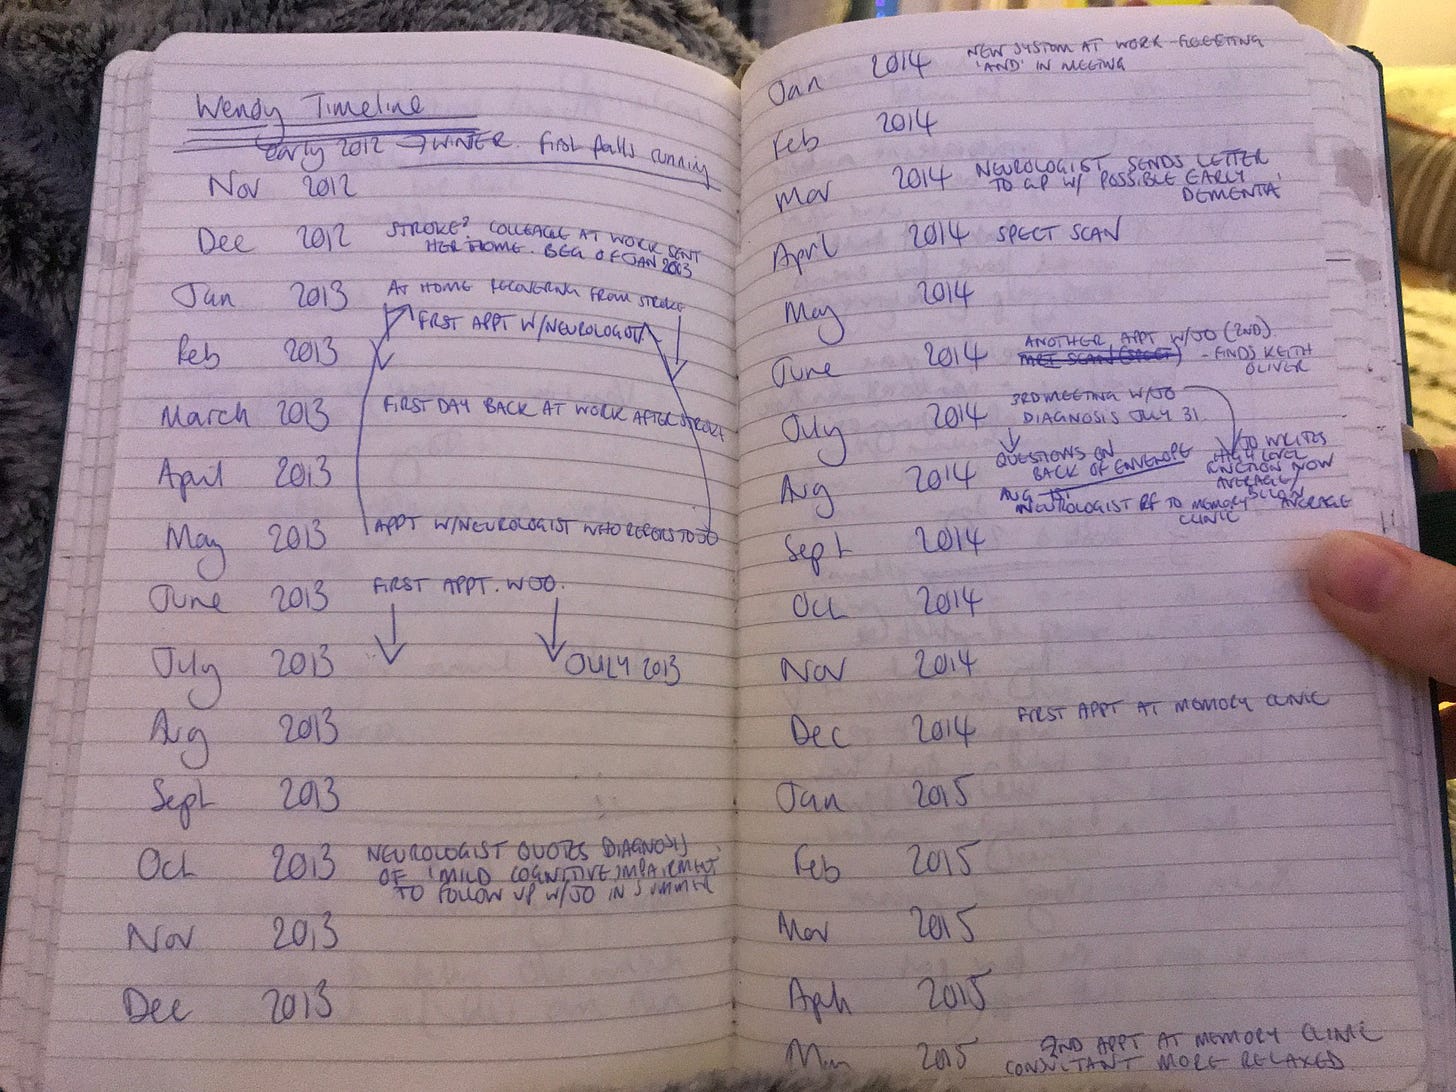 Wendy Timeline
early 2012 → WINTER. first falls running
Nov 2012
Dec 2012 STROKE? COLLEAGE AT WORK SENT
HER HOME. BEG OF JAN 2013
Jan 2013 AT HOME RECOVERING FROM STROKE
FIRST APPT W/NEUROLOGIST
Feb 2013
March 2013 FIRST DAY BACK AT WORK AFTER STROKE
April 2013
May 2013 APPT W/NEUROLOGIST WHO REFERS TO JO
June 2013 FIRST APPT. W JO.
July 2013 JULY 2013
Aug 2013
Sept 2013
Oct 2013 NEUROLOGIST QUOTES DIAGNOSIS
OF 'MILD COGNITIVE IMPAIRMENT'
TO FOLLOW UP W/JO IN SUMMER
Nov 2013
Dec 2013
Jan 2014 NEW SYSTEM AT WORK
'AND' IN MEETING
Feb 2014
Mar 2014 NEUROLOGIST SENDS LETTER
TO GP W/ POSSIBLE EARLY
DEMENTIA'
April 2014 SPECT SCAN
May 2014
June 2014 ANOTHER APPT W/JO (2ND).
- FINDS KEITH
OLIVER
July 2014 3RD MEETING W/JO
DIAGNOSIS JULY 31
Aug 2014 QUESTIONS ON
BACK OF ENVELOPE
JO WRITES
HIGH LEVEL
FUNCTION NOW
AVERAGE/
AVERAGE
AUG
NEUROLOGIST RF TO MEMORY
CLINIC
Sept 2014
Oct 2014
Nov 2014
Dec 2014 FIRST APPT AT MEMORY CLINIC
Jan 2015
Feb 2015
Mar 2015
2015
2015 2ND APPT AT MEMORY CLINIC
CONSULTANT MORE RELAXED